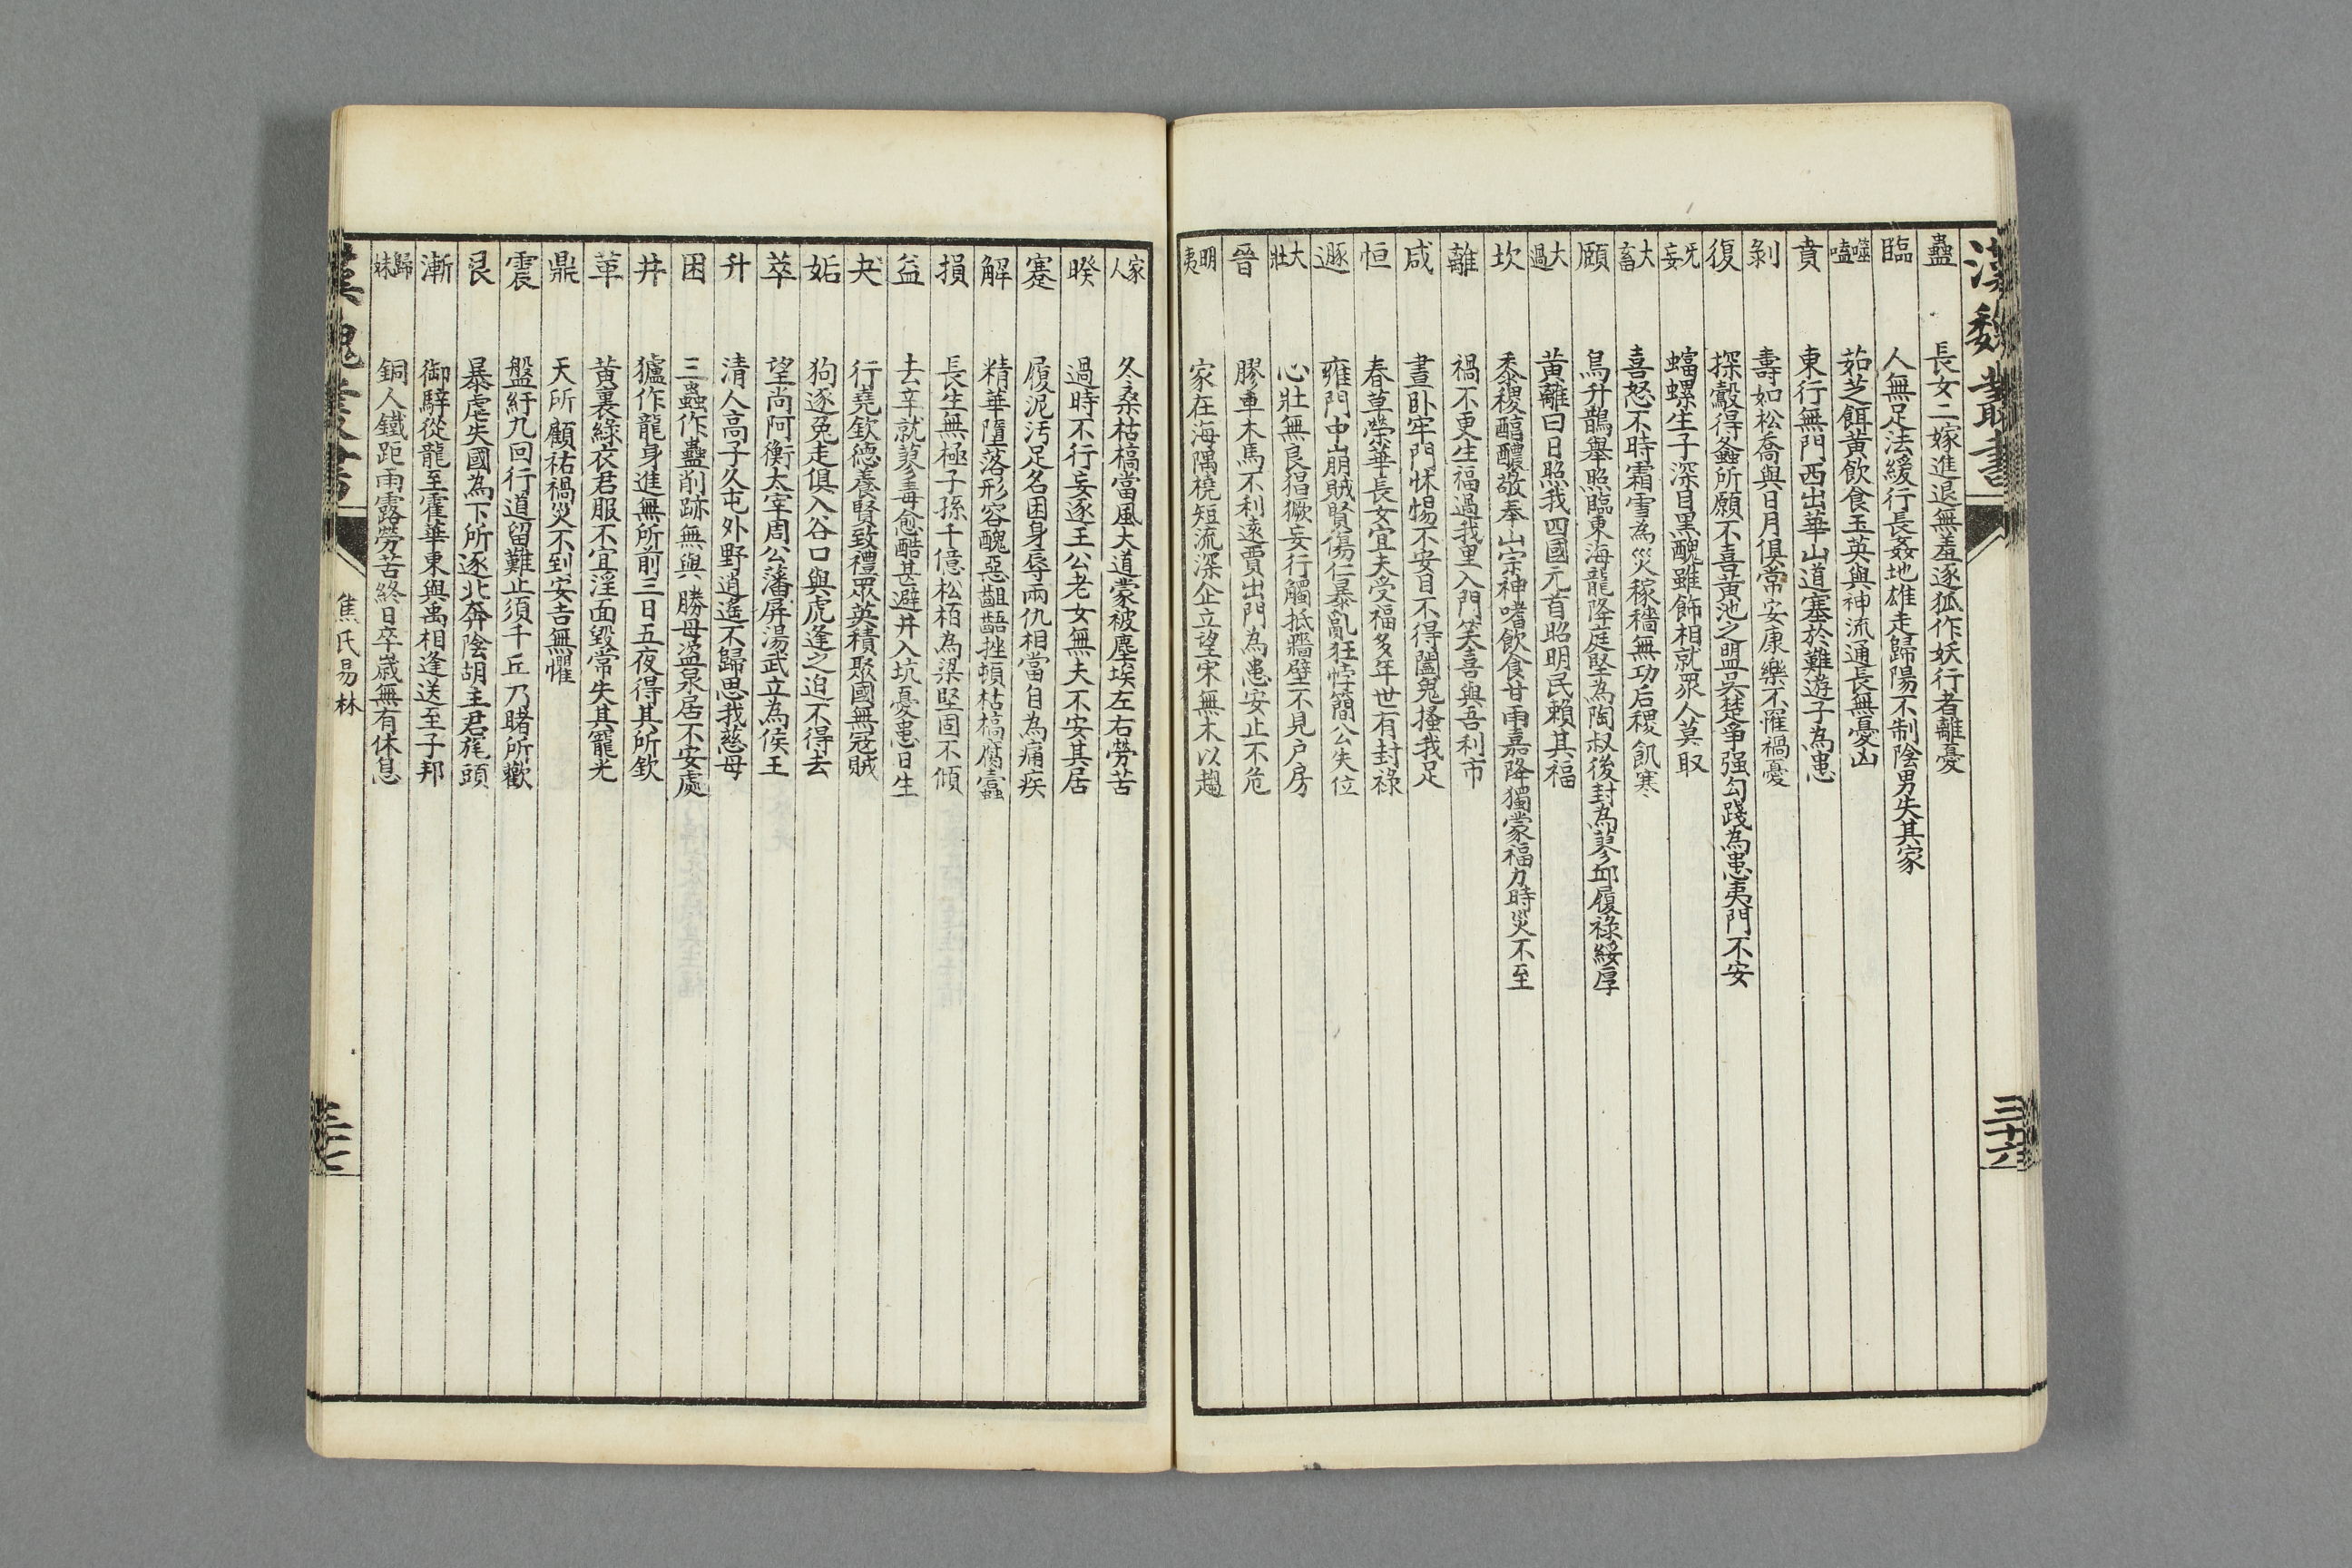 漢魏叢書
三十六
蠱 長女二嫁進退無羞逐狐作妖行者離憂
臨 人無足法緩行長姦地雄走歸陽不制陰男失其家
噬嗑 茹芝餌黃飲食玉英與神流通長無憂凶
賁 東行無門西出華山道塞於難遊子為患
剝 壽如松喬與日月俱常安康樂不罹禍憂
復 探鷇得螽所願不喜黃池之盟吳楚爭强勾踐為患夷門不安
无妄 蟷螺生子深目黑醜雖飾相就眾人莫取
大畜 喜怒不時霜雪為災稼穡無功后稷飢寒
頤 鳥升鵲舉照臨東海龍降庭堅為陶叔後封為蓼邱履祿綏厚
大過 黃離曰日照我四國元首昭明民賴其福
坎 黍稷醇醴敬奉山宗神嗜飲食甘雨嘉降獨蒙福力時災不至
離 禍不更生福過我里入門笑喜與吾利市
咸 晝卧牢門怵惕不安目不得闔鬼搔我足
恒 春草榮華長女宜夫受福多年世有封祿
遯 雍門中崩賊賢傷仁暴亂狂悖簡公失位
大壯 心壯無良猖獗妄行觸抵牆壁不見户房
晉 膠車木馬不利遠賈出門為患安止不危
明夷 家在海隅橈短流深企立望宋無木以趨
家人 久桑枯槁當風大道蒙被塵埃左右勞苦
睽 過時不行妄逐王公老女無夫不安其居
蹇 履泥汚足名困身辱兩仇相當自為痛疾
解 精華墮落形容醜惡齟齬挫頓枯槁腐蠹
損 長生無極子孫千億松栢為梁堅固不傾
益 去辛就蓼毒愈酷甚避井入坑憂患日生
夬 行堯欽德養賢致禮眾英積聚國無寇賊
姤 狗逐兔走俱入谷口與虎逢之迫不得去
萃 望尚阿衡太宰周公藩屏湯武立為侯王
升 清人高子久屯外野逍遙不歸思我慈母
困 三蟲作蠱削跡無與勝母盜泉居不安處
井 獹作龍身進無所前三日五夜得其所欽
革 黃裏綠衣君服不宜淫面毀常失其寵光
鼎 天所顧祐禍災不到安吉無懼
震 盤紆九回行道留難止須千丘乃睹所歡
艮 暴虐失國為下所逐北奔陰胡主君旄頭
漸 御騂從龍至霍華東與禹相逢送至子邦
歸妹 銅人鐵距雨露勞苦終日卒歲無有休息
漢魏叢書
焦氏易林
三十七